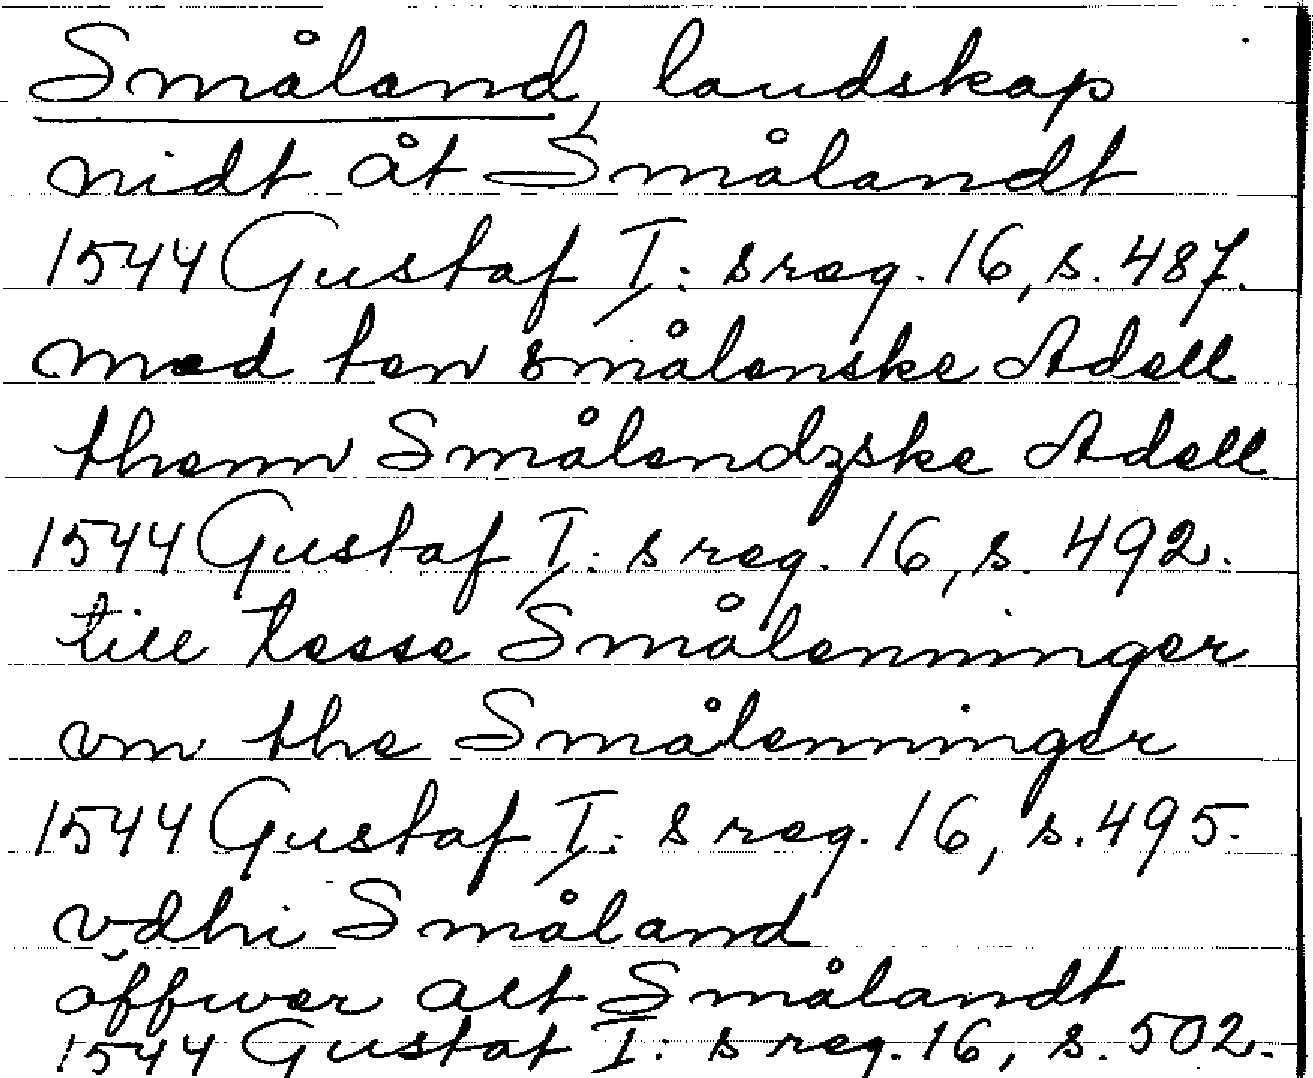 Småland, landskap
nidt åt Smålandt
1544 Gustaf I: s reg. 16, s. 487.
med ten smålenske Adell
thenn Smålendzske Adell
1544 Gustaf I: s reg. 16, s. 492.
till tesse Smålenninger
vm the Smålenninger
1544 Gustaf I: s reg. 16, s. 495.
vdhi Småland
öffwer alt Smålandt
1544 Gustaf I: s reg. 16, s. 502.